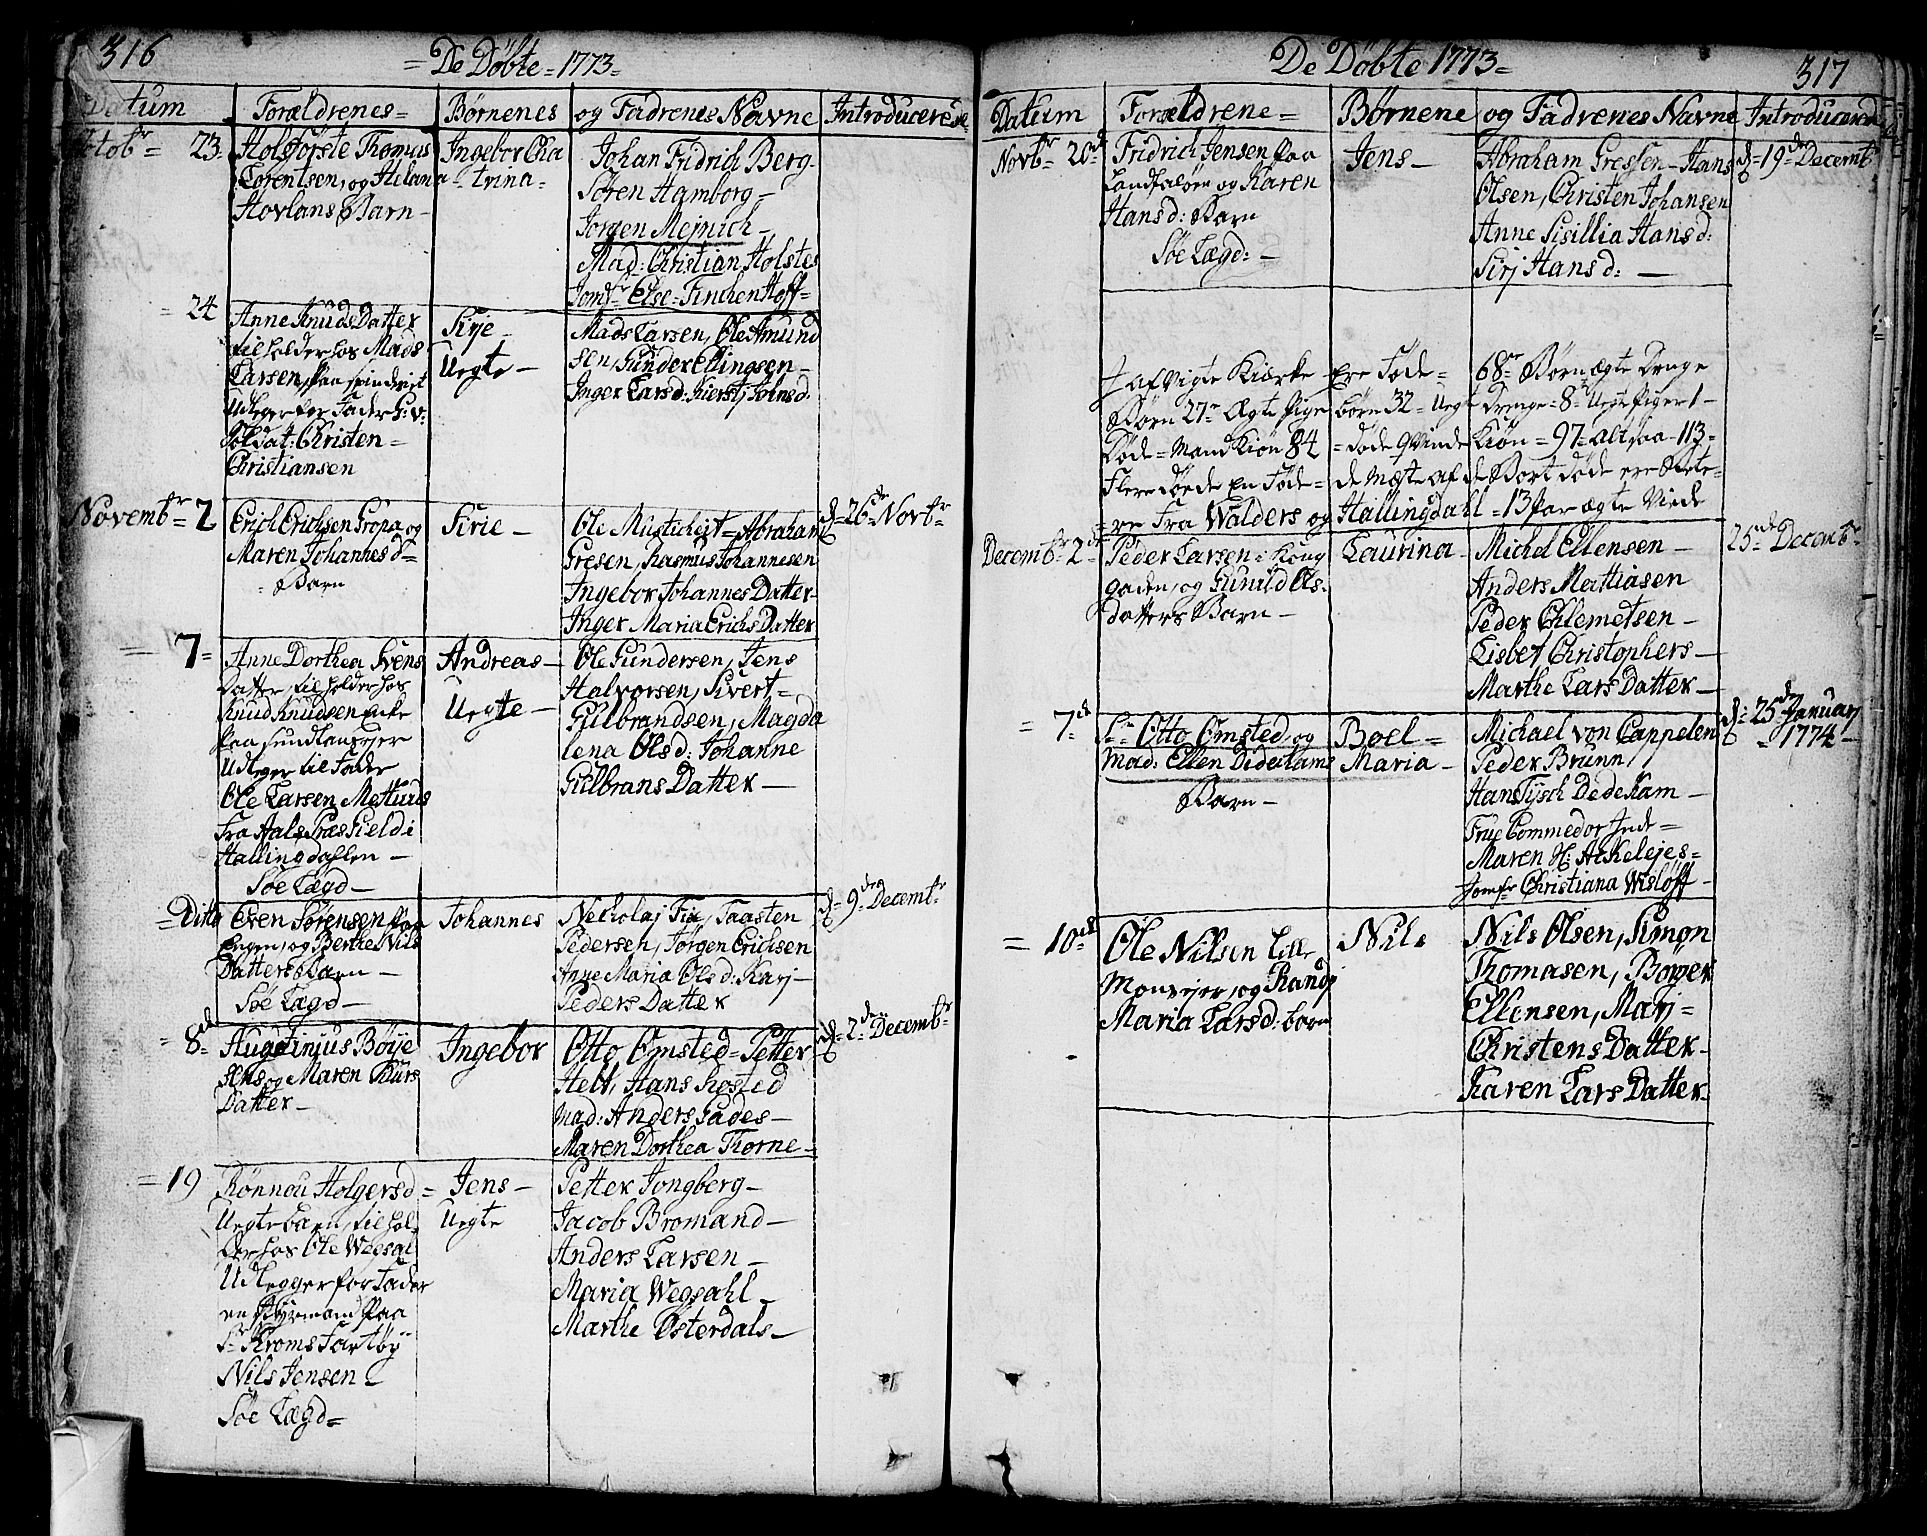 316
= De Döbte = 1773 =
Datum Forældrenes = Børnenes og Fadrenes Navne Introducerede
Octobr = 23 =
Holsförste Thomus
Lorentsen, og Helana
Hovlans Barn -
Ingebor Cha
= trina =
Johan Fridrich Berg -
Sören Hamborg -
Jorgen Mejnich -
Mad: Christian Holstes
Jomfr Else = Finchen Hoff =
= 24
Anne Knuds Datter
tilholder hos Mads
Larsen, paa
Udleger for Fader
Soldat: Christen =
Christiansen
Sirje -
Uegte -
Mads Larsen, Ole Amund
sen, Gunder Ellingsen -
Inger Larsd: Kierstj Johnsd:
Novembr = 2
Erich Erichsen Gropa og
Maren Johannesd =
= Barn
Sirie -
Ole Mustiheit = Abraham
Gresen, Rasmus Johannesen
Ingebor Johannes Datter -
Inger Maria Erichs Datter
d = 26de Novbr
= 7 =
Anne Dorthea Svens
Datter, tilholder hos
Knud Knudsen Enke
paa
Udleger til Fader
Ole Larsen
Fra Aals Præs Gield i
Hallingdahlen -
Söe Lægd -
Andreas -
Uegte -
Ole Gundersen, Jens
Halvorsen, Sivert =
Gulbrandsen, Magda
lena Olsd: Johanne
Gulbrans Datter -
= Ditto
Even Sörensen paa
Engen, og Berthe Nils
Datters Barn -
Söe Lægd -
Johannes
Necholaj Fia, Taasten
Pedersen, Jørgen Erichsen
Anne Maria Olsd: Karj -
Peders Datter
d = 9de Decembr
= 8de
Augustinjus Böyje
sens og Maren Kurs
Datter -
Ingebor
Otto Omsted = Petter
Helt, Hans Rosted
Mad: Anders Gades -
Maren Dorthea Thorne =
d = 2den Decembr
= 19
Rönnou Holgersd =
Uegte barn, tilhol
der hos Ole Wegsal
Udlegger for Fader
en paa
Sr Kroms Fartöy
Nils Jensen -
Söe Lægd =
Jens -
Uegte
Petter Jongberg -
Jacob Bromand -
Anders Larsen -
Maria Wegsahl -
Marthe Østerdals -
De Döbte 1773 =
317
Datum Forældrene = Børnene og Fadrenes Navne Introducered
Novbr = 20d
Fridrich Jensen paa
Landfalöen og Karen
Hansd: Barn
Söe Lægd: -
Jens -
Abraham Gressen - Hans
Olsen, Christen Johansen
Anne Sisillia Hansd:
Sirj Hansd: -
d = 19de Decembr
I afvigte Kiærke ere Föde = 68 Börn ægte Drenge
Börn 27 Ægte Pige börn 32 = Uegt Drenge = 8 = Uegte Piger 1 -
Döde = Mand Kiön 84 = döde Qvinde Kiön = 97 = alt saa 113 =
Flere döde en Föde = de Mæste af de Bort döde ere Bete =
= re Fra Walders og Hallingdahl = 13 Par ægte Viede
Decembr = 2de
Peder Larsen i Kong
gaden, og Gunild Ols =
datters Barn -
Laurina -
Michel Ellensen -
Anders Mattiasen
Peder Chlemetsen -
Lisbet Christophers -
Marthe Lars Datter -
25de Decembr
= 7d
Sr Otto Omsted og
Mad: Ellen Diderlams
Barn -
Boel =
Maria -
Michael von Cappelen
Peder Brunn
Hans Tÿsch Dedekam -
Frue Commedor Jude =
Maren H: Arkelejes =
Jomfr Christiana Wislöff -
d = 25d Januarj
= 1774 -
= 10d
Ole Nilsen Lille
Monsejer, og Randj
Maria Larsd: barn
Nils
Nils Olsen, Simon
Thomasen, Borger
Ellensen, Marj =
Christens Datter -
Karen Lars Datter -